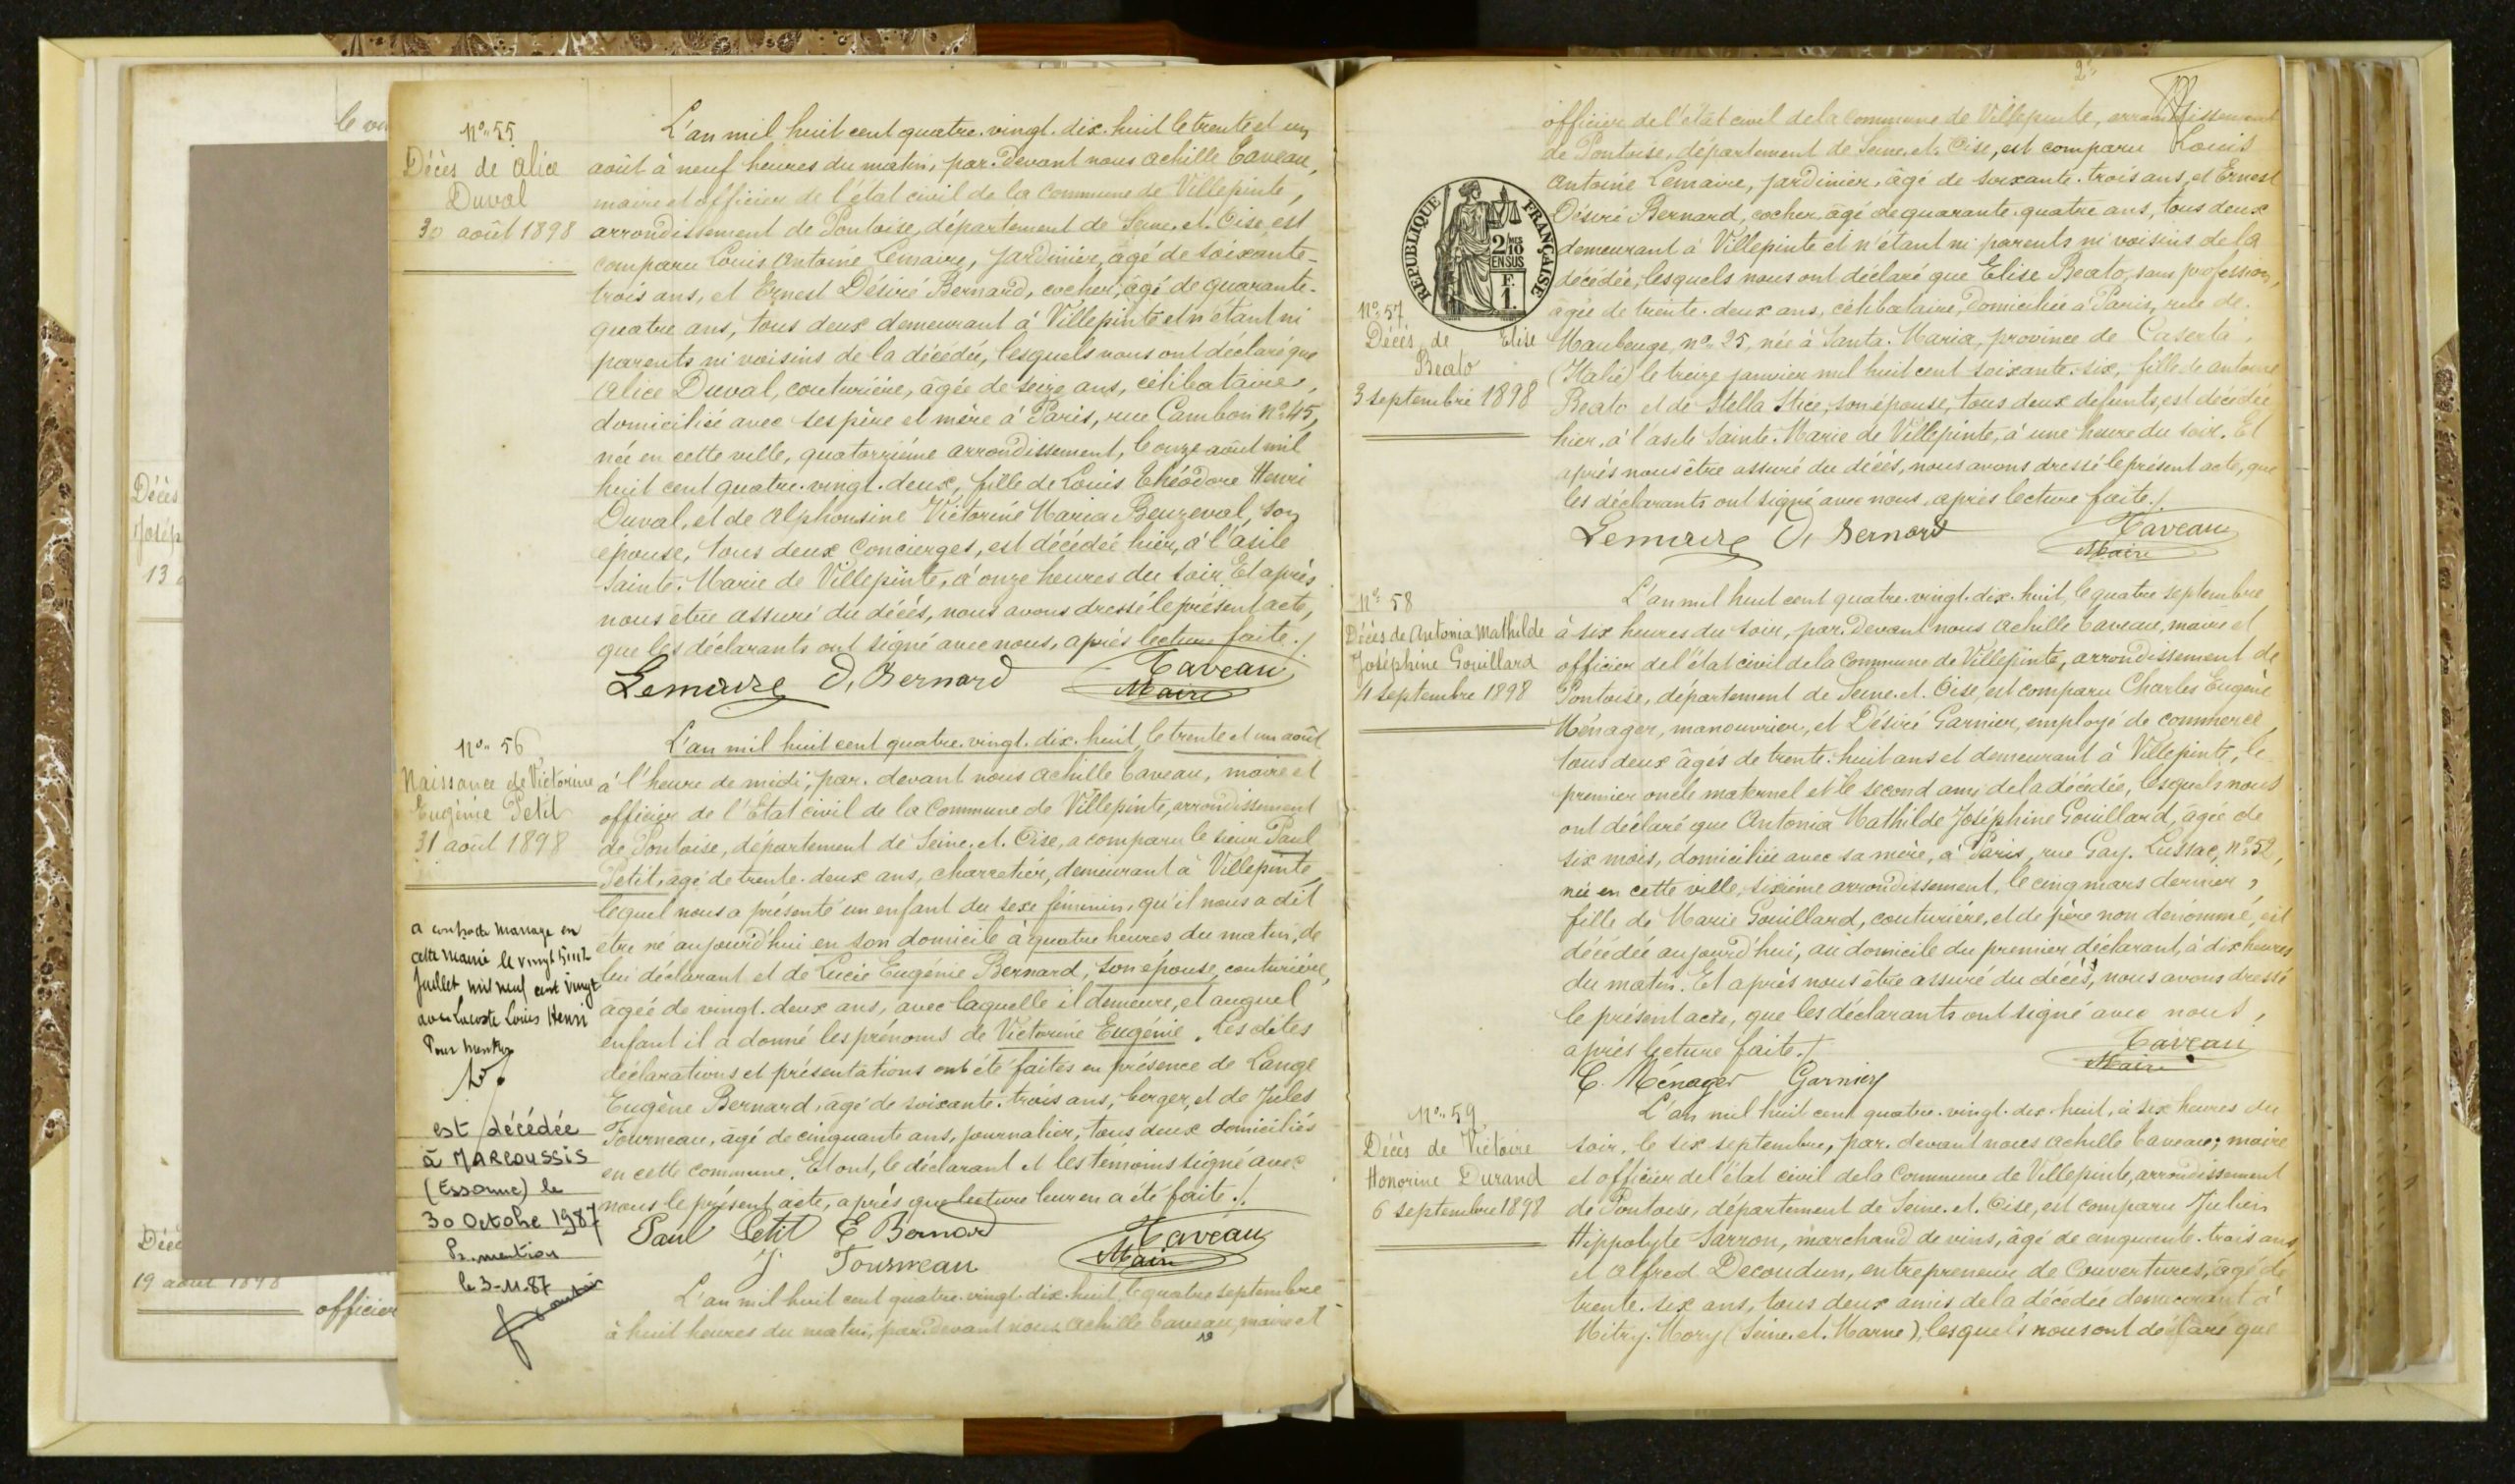 le
Décès
Josép
13
Déc
19 août 1898
officier
N° 55
Décès de Alice
Duval
30 août 1898
L'an mil huit cent quatre-vingt-dix-huit le trente et un
août à neuf heures du matin, par-devant nous Achille Taveau,
maire et officier de l'état civil de la Commune de Villepinte,
arrondissement de Pontoise, département de Seine-et-Oise, est
comparu Louis Antoine Lemaire, jardinier, âgé de soixante-
trois ans, et Ernest Désiré Bernard, cocher, âgé de quarante-
quatre ans, tous deux demeurant à Villepinte et n'étant ni
parents ni voisins de la décédée, lesquels nous ont déclaré que
Alice Duval, couturière, âgée de seize ans, célibataire,
domiciliée avec ses père et mère à Paris, rue Cambon N° 45,
née en cette ville, quatorzième arrondissement, le onze août mil
huit cent quatre-vingt-deux, fille de Louis Théodore Henri
Duval, et de Alphonsine Victorine Maria Beuzeval, son
épouse, tous deux Concierges, est décédée hier, à l'asile
Sainte-Marie de Villepinte, à onze heures du soir. Et après
nous être assuré du décès, nous avons dressé le présent acte,
que les déclarants ont signé avec nous, après lecture faite ./.
Lemaire D, Bernard Taveau
Maire
N° 56
Naissance de Victorine
Eugénie Petit
31 août 1898
a contracté mariage en
cette mairie le vingt huit
juillet mil neuf cent vingt
avec Lacoste Louis Henri
Pour mention
est décédée
à MARCOUSSIS
(Essonne) le
30 Octobre 1987
P. mention
le 3-11-87
L'an mil huit cent quatre-vingt-dix-huit, le trente et un août
à l'heure de midi, par-devant nous Achille Taveau, maire et
officier de l'Etat civil de la Commune de Villepinte, arrondissement
de Pontoise, département de Seine-et-Oise, a comparu le sieur Paul
Petit, âgé de trente-deux ans, charretier, demeurant à Villepinte
lequel nous a présenté un enfant du sexe féminin, qu'il nous a dit
être né aujourd'hui en son domicile à quatre heures du matin, de
lui déclarant et de Lucie Eugénie Bernard, son épouse, couturière,
âgée de vingt-deux ans, avec laquelle il demeure, et auquel
enfant il a donné les prénoms de Victorine Eugénie. Les dites
déclarations et présentations ont été faites en présence de Lange
Eugène Bernard, âgé de soixante-trois ans, berger, et de Jules
Tourneau, âgé de cinquante ans, journalier, tous deux domiciliés
en cette commune. Et ont, le déclarant et les témoins signé avec
nous le présent acte, après que lecture leur en a été faite ./.
Paul Petit E Bernard Taveau
J Tourneau Maire
L'an mil huit cent quatre-vingt-dix-huit, le quatre septembre
à huit heures du matin, par-devant nous Achille Taveau, maire et
officier de l'état civil de la Commune de Villepinte, arrondissement
de Pontoise, département de Seine-et-Oise, est comparu Louis
Antoine Lemaire, jardinier, âgé de soixante-trois ans, et Ernest
Désiré Bernard, cocher, âgé de quarante-quatre ans, tous deux
demeurant à Villepinte et n'étant ni parents ni voisins de la
décédée, lesquels nous ont déclaré que Elise Beato, sans profession,
âgée de trente-deux ans, célibataire, domiciliée à Paris, rue de
Maubeuge, n° 25, née à Santa-Maria, province de Caserta,
(Italie) le treize janvier mil huit cent soixante-six, fille de Antoine
Beato et de Stella Stice, son épouse, tous deux défunts, est décédée
hier, à l'asile Sainte-Marie de Villepinte, à une heure du soir. Et
après nous être assuré du décès, nous avons dressé le présent acte, que
les déclarants ont signé avec nous, après lecture faite ./.
REPUBLIQUE FRANÇAISE
2/10 EN SUS
F. 1
N° 57
Décès de Elise
Beato
3 septembre 1898
Lemaire D, Bernard Taveau
Maire
N° 58
Décès de Antonia Mathilde
Joséphine Gouillard
4 septembre 1898
L'an mil huit cent quatre-vingt-dix-huit, le quatre septembre
à six heures du soir, par-devant nous Achille Taveau, maire et
officier de l'état civil de la Commune de Villepinte, arrondissement de
Pontoise, département de Seine-et-Oise, est comparu Charles Eugène
Ménager, manouvrier, et Désiré Garnier, employé de commerce,
tous deux âgés de trente-huit ans et demeurant à Villepinte, le
premier oncle maternel et le second ami de la décédée, lesquels nous
ont déclaré que Antonia Mathilde Joséphine Gouillard, âgée de
six mois, domiciliée avec sa mère, à Paris, rue Gay-Lussac, n° 52,
née en cette ville, sixième arrondissement, le cinq mars dernier,
fille de Marie Gouillard, couturière, et de père non dénommé, est
décédée aujourd'hui, au domicile du premier déclarant, à dix heures
du matin. Et après nous être assuré du décès, nous avons dressé
le présent acte, que les déclarants ont signé avec nous,
après lecture faite ./.
C. Ménager Garnier Taveau
Maire
N° 59
Décès de Victoire
Honorine Durand
6 septembre 1898
L'an mil huit cent quatre-vingt-dix-huit, à six heures du
soir, le six septembre, par-devant nous Achille Taveau, maire
et officier de l'état civil de la Commune de Villepinte, arrondissement
de Pontoise, département de Seine-et-Oise, est comparu Julien
Hippolyte Sarron, marchand de vins, âgé de cinquante-trois ans,
et Alfred Decoudun, entrepreneur de Couvertures, âgé de
trente-six ans, tous deux amis de la décédée demeurant à
Mitry-Mory (Seine-et-Marne), lesquels nous ont déclaré que